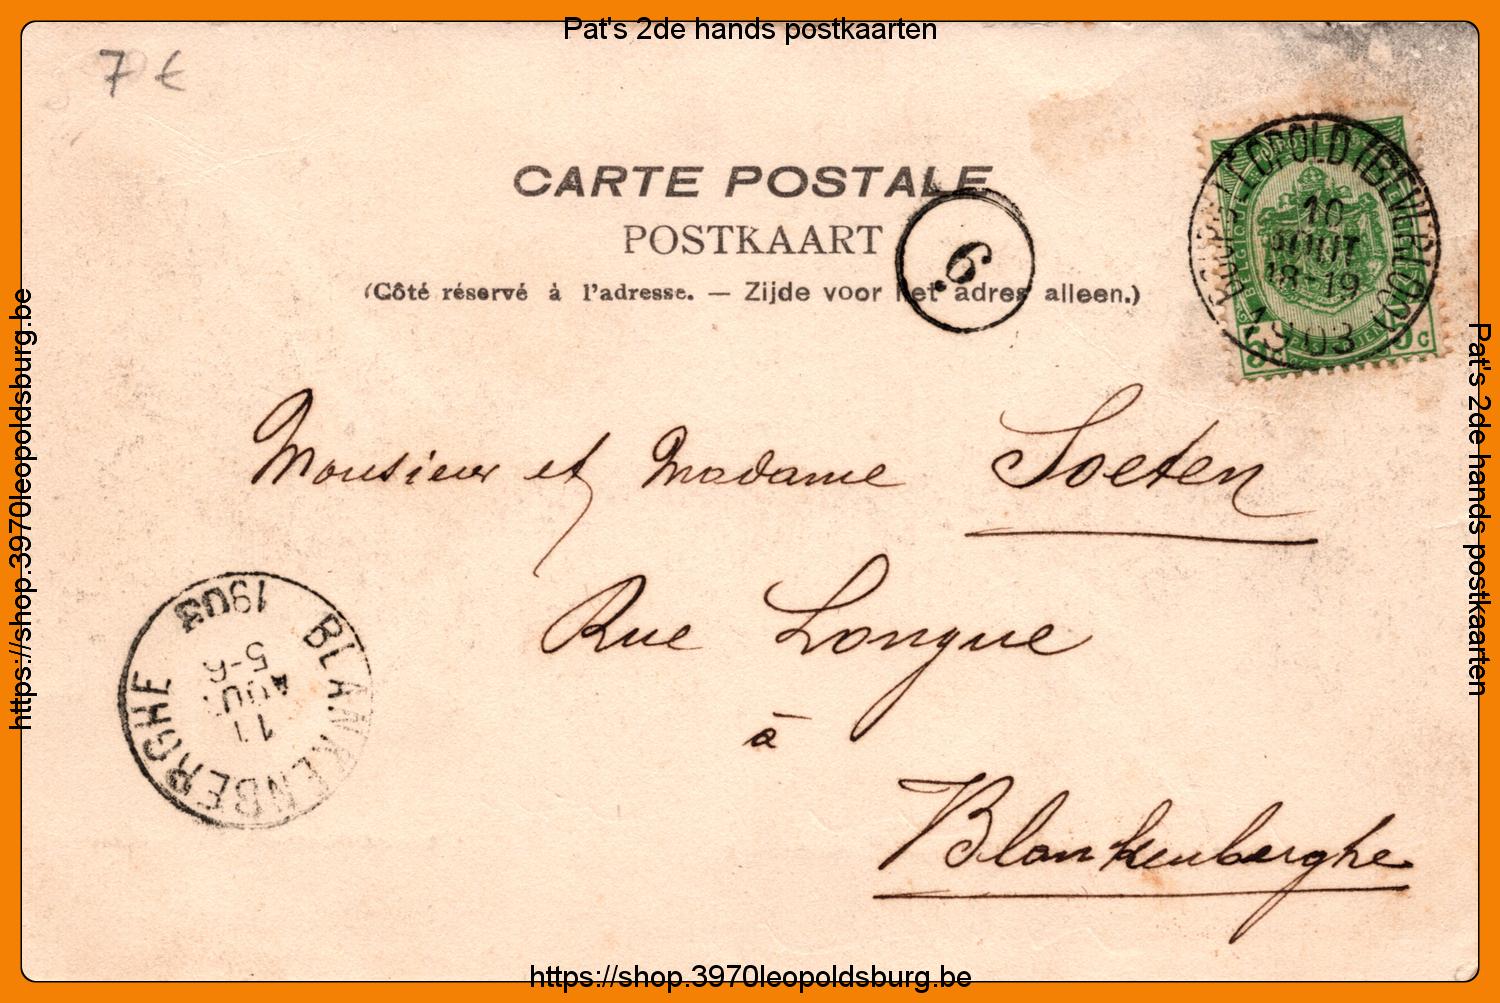 Pat's 2de hands postkaarten
7 €
CARTE POSTALE
POSTKAART
(Côté réservé à l'adresse. — Zijde voor het adres alleen.)
6
BOURG-LÉOPOLD (BEVERLOO)
10
AOUT
18-19
1903
Monsieur et Madame Soeten
Rue Longue
à
Blankenberghe
BLANKENBERGHE
11
AOUT
5-6
1903
https://shop.3970leopoldsburg.be
Pat's 2de hands postkaarten
https://shop.3970leopoldsburg.be